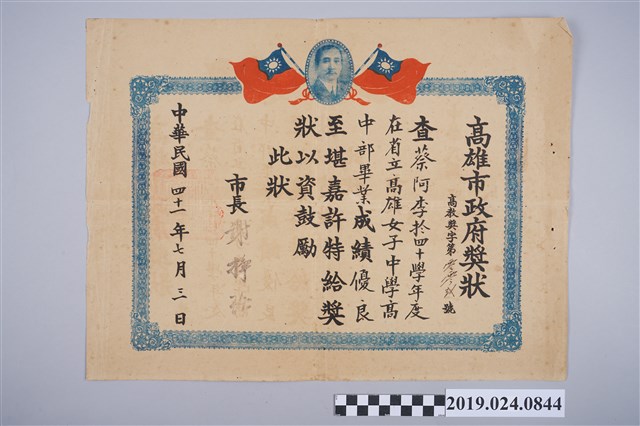 高雄市政府獎狀
高教獎字第　　號
查蔡阿李於四十學年度
在省立高雄女子中學高
中部畢業成績優良
至堪嘉許特給獎
狀以資鼓勵
此狀
市長 謝掙強
中華民國四十一年七月三日
2019.024.0844